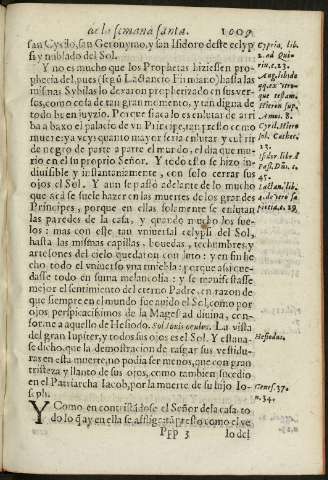 de la semana santa. 1009
san Cyrilo, san Geronymo, y san Isidoro deste eclyp
si y nublado del Sol.
Y no es mucho que los Prophetas hiziessen pro
phecia del, pues (segũ Lactancio Firmiano) hasta las
mismas Sybilas lo dexaron prophetizado en sus ver-
sos, como cosa de tan gran momento, y tan digna de
todo buen juyzio. Porque si aca lo es enlutar de arri
ba a baxo el palacio de vn Principe, tan presto como
muere: ya veys quanto mayor seria enlutar y cubrir
de negro de parte a parte el mundo, el dia que mu-
rio en el su proprio Señor. Y todo esto se hizo in-
diuisible y instantaniamente, con solo cerrar sus
ojos el Sol. Y aun se passò adelante de lo mucho
que acà se suele hazer en las muertes de los grandes
Principes, porque en ellas solamente se enlutan
las paredes de la casa, y quando mucho los sue-
los: mas con este tan vniuersal eclypsi del Sol,
hasta las mismas capillas, bouedas, techumbres, y
artesones del cielo quedaron con luto: y en fin he
cho todo el vniuerso vna tiniebla: porque assi que-
dasse todo en suma melancolia: y se manifestasse
mejor el sentimiento del eterno Padre, en razon de
que siempre en el mundo fue auido el Sol, como por
ojos perspicacissimos de la Magestad diuina, con-
forme a aquello de Hesiodo. Sol Iouis oculus. La vista
del gran Iupiter, y todos sus ojos es el Sol. Y estaua-
se dicho, que la demostracion de rasgar sus vestidu-
ras en esta muerte, no podia ser menos, que con gran
tristeza y llanto de sus ojos, como tambien sucedio
en el Patriarcha Iacob, por la muerte de su hijo Io-
seph.
Y Como en contristãdose el Señor de la casa, to
do lo q̃ ay en ella se affligẽ: tã presto como el ve
PPP 3 lo del
Cypria. lib.
2. ad Qui-
rin. c. 23.
Hieron. sup.
Amos. 8.
Cyril. Hiero
sol. Cathec.
13.
Isidor. lib.
45.
Lactan. lib.
Hesiodus.
Genes. 37.
n. 34.